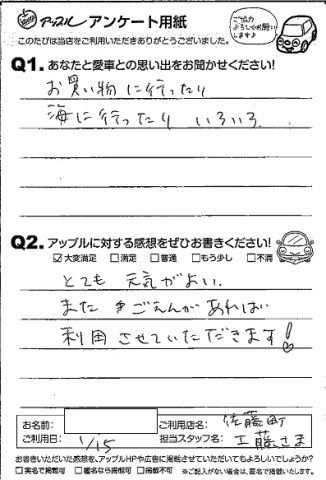 アップル アンケート用紙
このたびは当店をご利用いただきありがとうございました。
ご協力
よろしくお願い
します♪
Q1. あなたと愛車との思い出をお聞かせください!
お買い物に行ったり
海に行ったり いろいろ.
Q2. アップルに対する感想をぜひお書きください!
☑大変満足 □満足 □普通 □もう少し □不満
とても 元気がよい.
また きごえんがあれば
利用 させていただきます!
お名前:
ご利用店名: 佐藤町
ご利用日: 1/15
担当スタッフ名: 工藤さま
お書きいただいた感想を、アップルHPや広告に掲載させていただいてもよろしいでしょうか?
□実名で掲載可 □匿名なら掲載可 □掲載不可 ※ご記入がない場合は、匿名で掲載いたします。